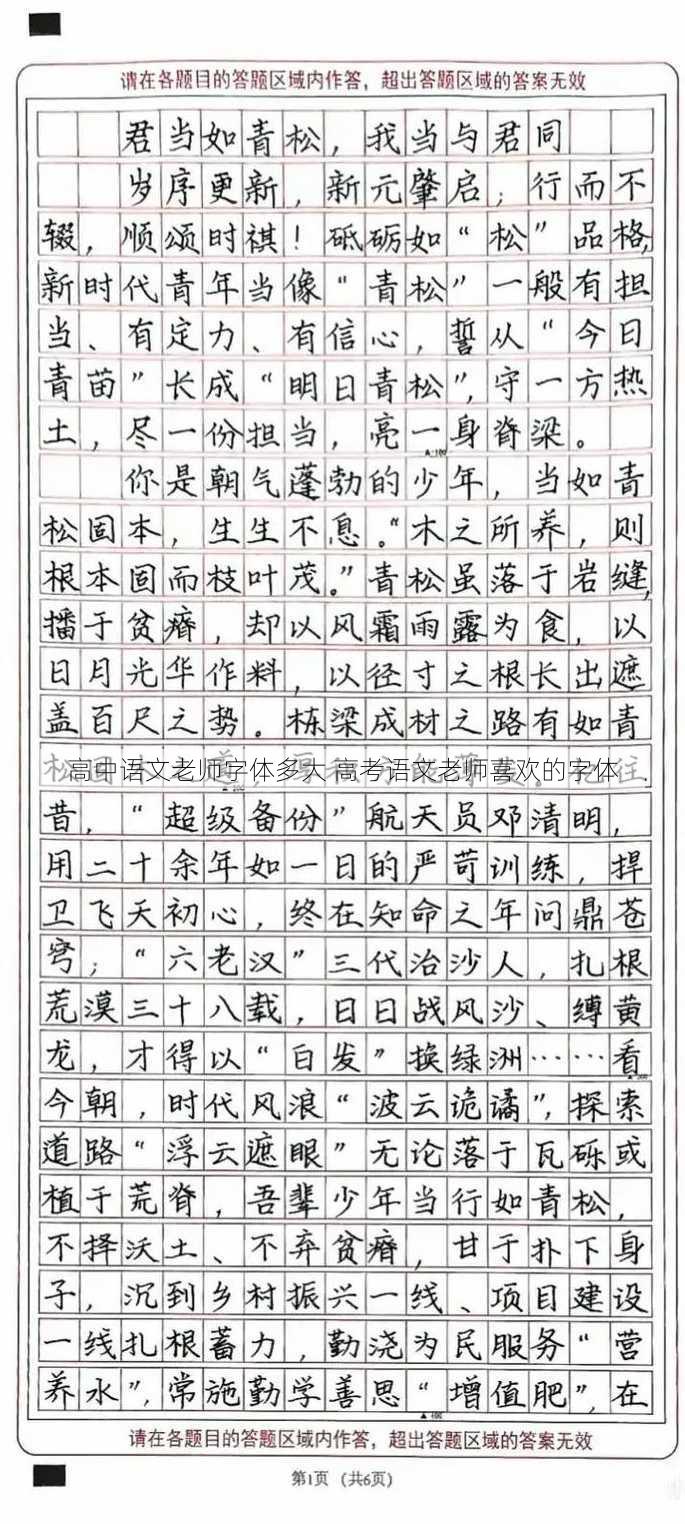 请在各题目的答题区域内作答，超出答题区域的答案无效
君当如青松，我当与君同
岁序更新，新元肇启；行而不
辍，顺颂时祺！砥砺如“松”品格，
新时代青年当像“青松”一般有担
当、有定力、有信心，誓从“今日
青苗”长成“明日青松”，守一方热
土，尽一份担当，亮一身脊梁。
▲100
你是朝气蓬勃的少年，当如青
松固本，生生不息。“木之所养，则
根本固而枝叶茂。”青松虽落于岩缝，
播于贫瘠，却以风霜雨露为食，以
日月光华作料，以径寸之根长出遮
盖百尺之势。栋梁成材之路有如青
高中语文老师字体多大 高考语文老师喜欢的字体
松固本之道，厚积方能薄发。忆往
昔，“超级备份”航天员邓清明，
用二十余年如一日的严苛训练，捍
卫飞天初心，终在知命之年问鼎苍
穹；“六老汉”三代治沙人，扎根
荒漠三十八载，日日战风沙、缚黄
龙，才得以“白发”换绿洲……看
今朝，时代风浪“波云诡谲”，探索
道路“浮云遮眼”无论落于瓦砾或
植于荒脊，吾辈少年当行如青松，
不择沃土、不弃贫瘠，甘于扑下身
子，沉到乡村振兴一线、项目建设
一线扎根蓄力，勤浇为民服务“营
养水”，常施勤学善思“增值肥”，在
▲400
请在各题目的答题区域内作答，超出答题区域的答案无效
第1页 （共6页）